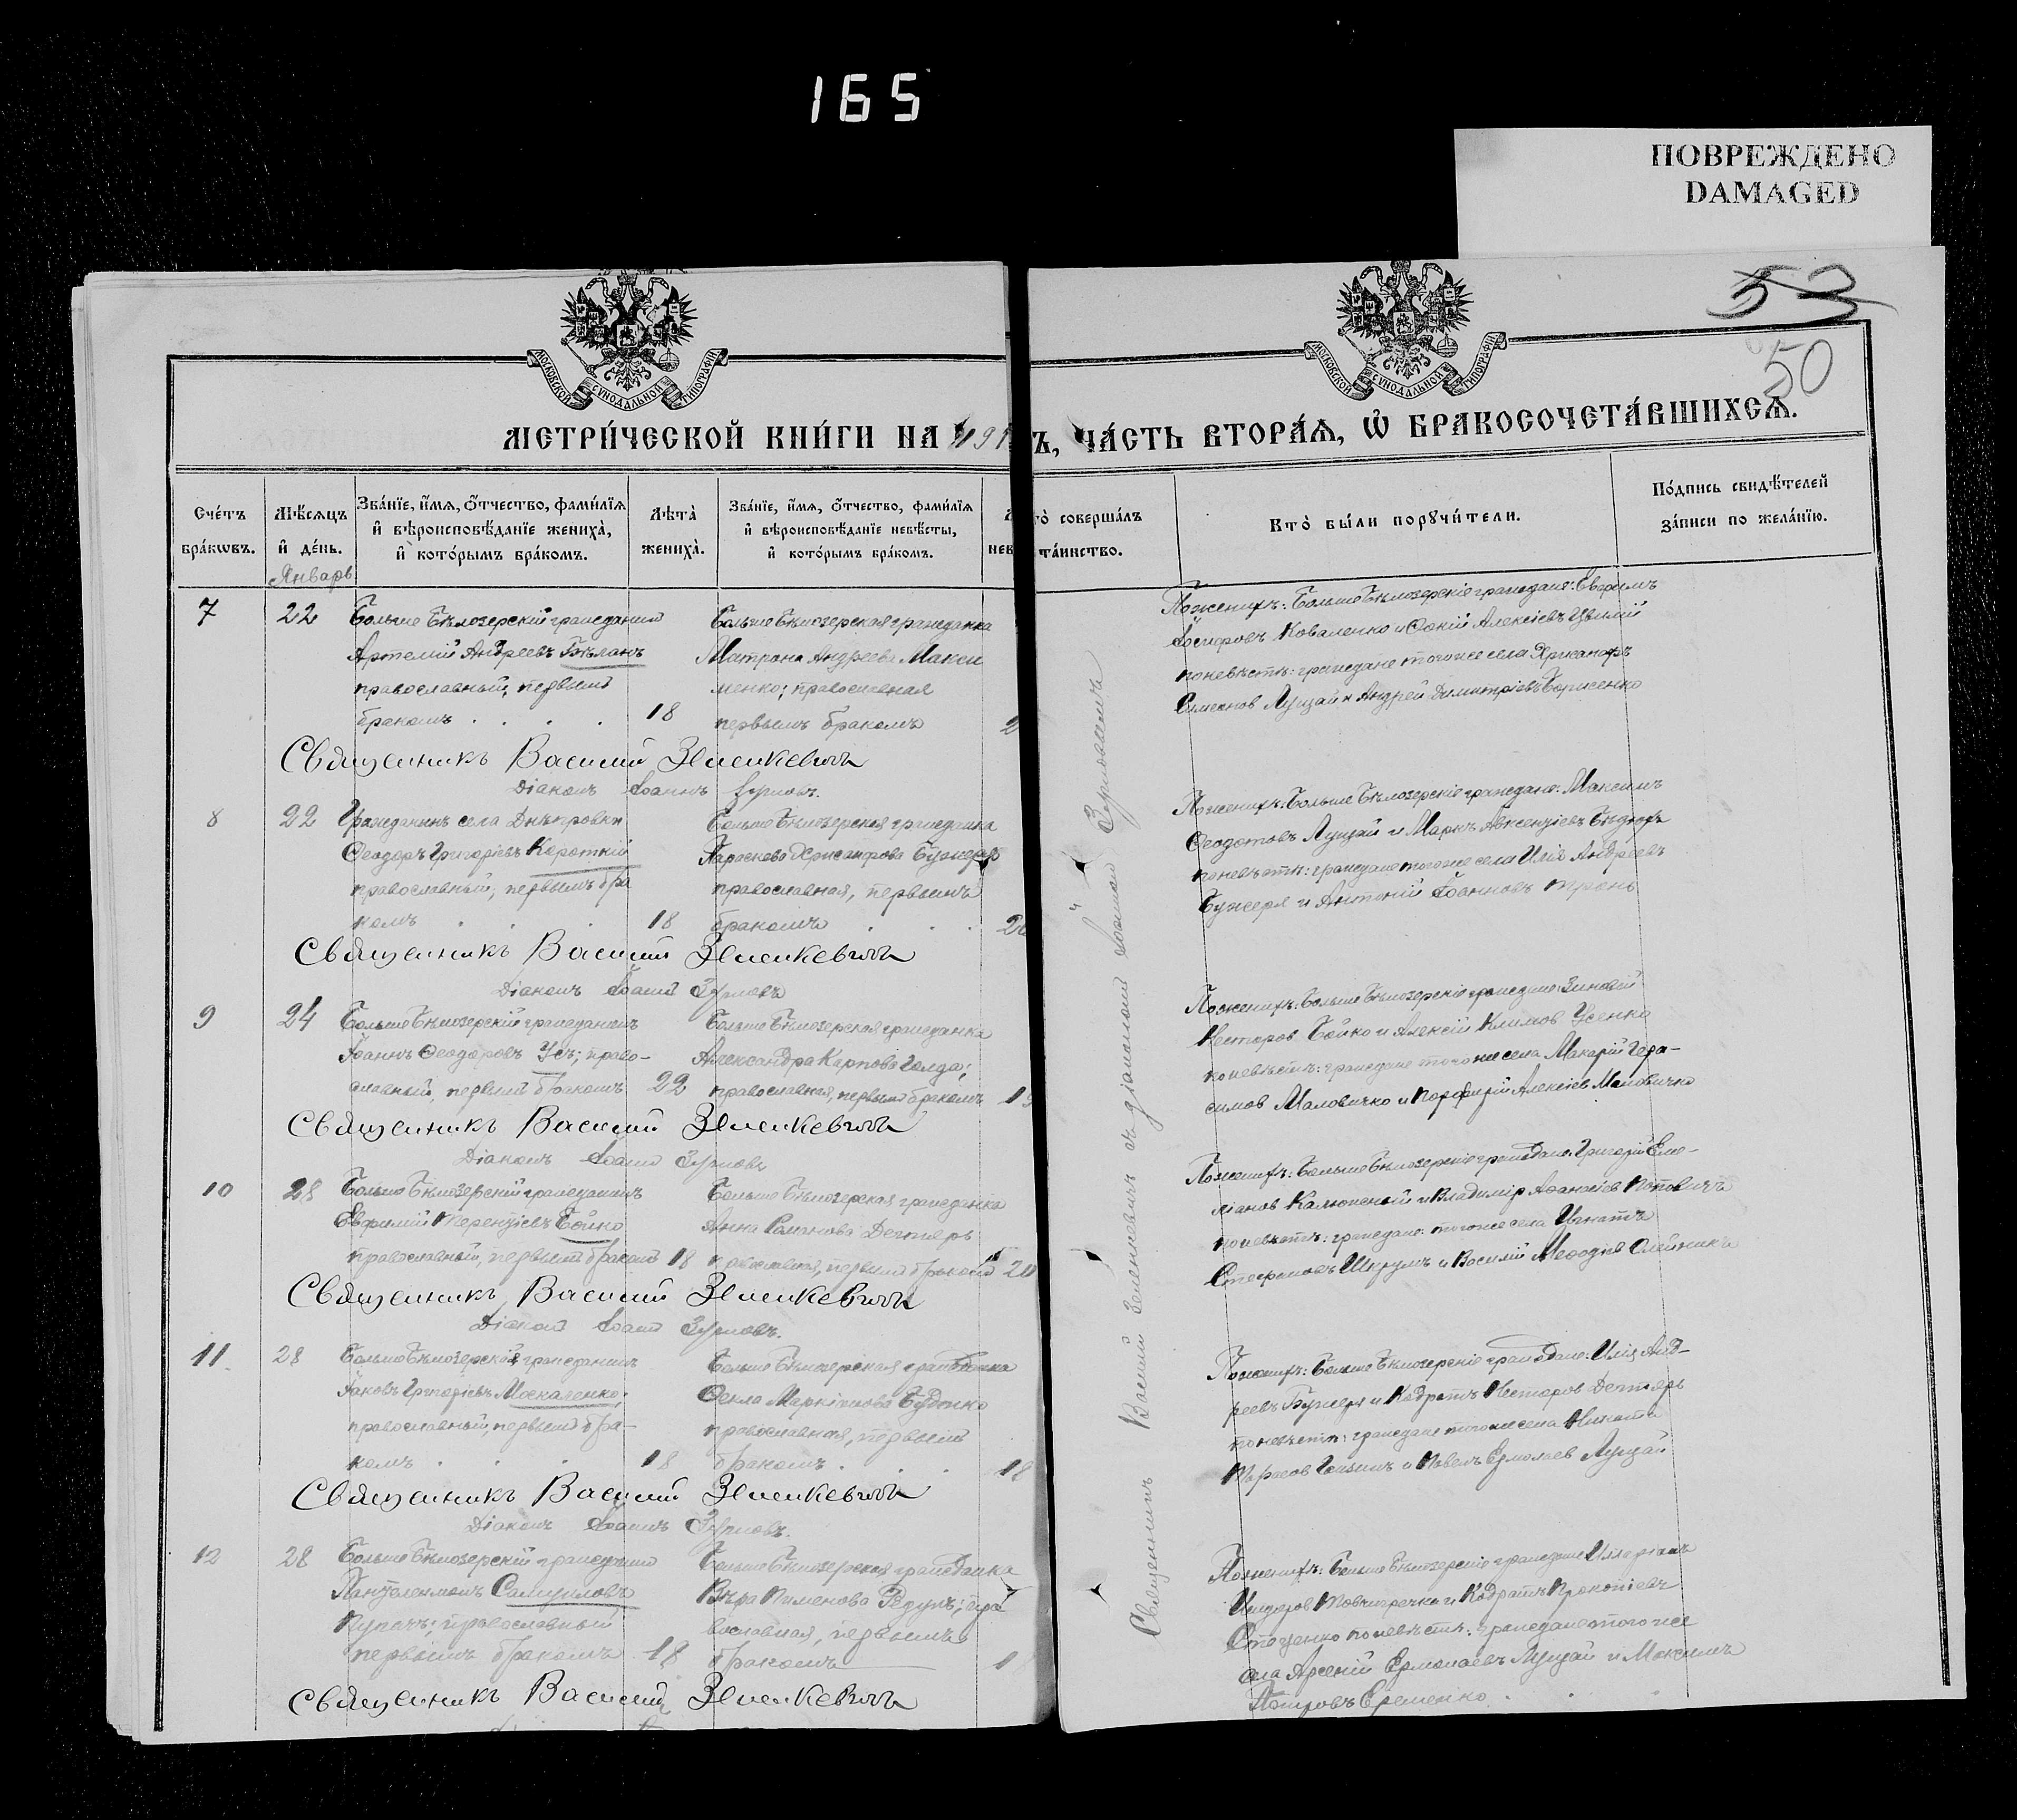 165
ПОВРЕЖДЕНО
DAMAGED
53
50
МОСКОВСКОЙ СѴНОДАЛЬНОЙ ТИПОГРАФІИ
МОСКОВСКОЙ СѴНОДАЛЬНОЙ ТИПОГРАФІИ
МЕТРИ́ЧЕСКОЙ КНИ́ГИ НА 191
Ъ, ЧА́СТЬ ВТОРА́Я, Ѽ БРАКОСОЧЕТА́ВШИХСЯ.
Сче́тъ бра́кѡвъ.
Мѣ́сяцъ и҆ де́нь.
Январь
Зва́нїе, и҆́мя, ѻ҆́тчество, фами́лїя и҆ вѣроисповѣ́данїе жениха̀, и҆ кото́рымъ бра́комъ.
Лѣ́та жениха̀.
Зва́нїе, и҆́мя, ѻ҆́тчество, фами́лїя и҆ вѣроисповѣ́данїе невѣ́сты, и҆ кото́рымъ бра́комъ.
нев
то̀ соверша́лъ та́инство.
Кто̀ бы́ли порꙋчи́тели.
По́дпись свидѣ́телей за́писи по жела́нїю.
7
22
Больше Бѣлозерскій гражданинъ
Артемій Андреевъ Бѣланъ
православный, первымъ
бракомъ . . . . 18
Больше Бѣлозерская гражданка
Матрона Андреева Макси
менко; православная
первымъ бракомъ 2
По женихѣ: Больше Бѣлозерскіе граждане: Евфимъ
Іосифовъ Коваленко и Алексіевъ
по невѣстѣ: граждане того же села Хрисанфъ
Симеонов Луцай и Андрей Димитріевъ Борисенко
Священникъ Василій Зменкевичъ
Діаконъ Іоаннъ Зерновъ.
8
22
Гражданинъ села Днѣпровки
Феодоръ Григоріевъ Короткій
православный, первымъ бра
комъ . . . 18
Больше Бѣлозерская гражданка
Параскева Хрисанфова Бужеря
православная, первымъ
бракомъ . . . 20
По женихѣ: Больше Бѣлозерскіе граждане: Максимъ
Феодотовъ Луцай и Маркъ Авксентіевъ
по невѣстѣ: граждане того же села Илія Андреевъ
Бужеря и Антоній Іоанновъ Трень
Священникъ Василій Зменкевичъ
Діаконъ Іоаннъ Зерновъ
9
24
Больше Бѣлозерскій гражданинъ
Іоаннъ Феодоровъ Усъ; право-
славный, первымъ бракомъ 22
Больше Бѣлозерская гражданка
Александра Карпова Голда;
православная, первымъ бракомъ 19
По женихѣ: Больше Бѣлозерскіе граждане: Зиновій
Несторов Бойко и Алексій Климов Усенко
по невѣстѣ: граждане того же села Макарій Гера-
симов Маловичко и Порфирій Алексіев Маловичко
Священникъ Василій Зменкевичъ
Діаконъ Іоаннъ Зерновъ
10
28
Больше Бѣлозерскій гражданинъ
Евфимій Терентіевъ Бойко
православный, первымъ бракомъ 18
Больше Бѣлозерская гражданка
Анна Романова Дегтярь
православная, первымъ бракомъ 20
По женихѣ: Больше Бѣлозерскіе граждане: Григорій Еме-
ліанов Калюжный и Владимір Афанасіев Поповичъ
по невѣстѣ: граждане того же села Игнатъ
Стефановъ Шкрумъ и Василій Мефодіев Олейникъ
Священникъ Василій Зменкевичъ
Діаконъ Іоаннъ Зерновъ.
11.
28
Больше Бѣлозерскій гражданинъ
Іаковъ Григоріевъ Москаленко;
православный, первымъ бра-
комъ . . . 18
Больше Бѣлозерская гражданка
Фекла Маркіанова Будтко
православная, первымъ
бракомъ . . . 18
По женихѣ: Больше Бѣлозерскіе граждане: Илія Анд-
реевъ Бужеря и Кодратъ Несторов Дегтярь
по невѣстѣ: граждане того же села Никита
Тарасов и Павелъ Ермолаев Луцай
Священникъ Василій Зменкевичъ
Діаконъ Іоаннъ Зерновъ.
12
28
Больше Бѣлозерскій гражданинъ
Пантелеимонъ Самуиловъ
Купачъ; православный
первымъ бракомъ 18
Больше Бѣлозерская гражданка
Вѣра Пименова Редунъ; пра
вославная, первымъ
бракомъ 1
По женихѣ: Больше Бѣлозерскіе граждане Илларіонъ
Исидоров Товчигречка и Кодратъ Прокопіевъ
Стеценко по невѣстѣ: граждане того же
села Арсеній Ермолаевъ Луцай и Максимъ
Петровъ Еременко . . .
Священникъ Василій Зменкевичъ
Священникъ Василій Зменкевичъ съ діакономъ Іоанномъ Зерновымъ